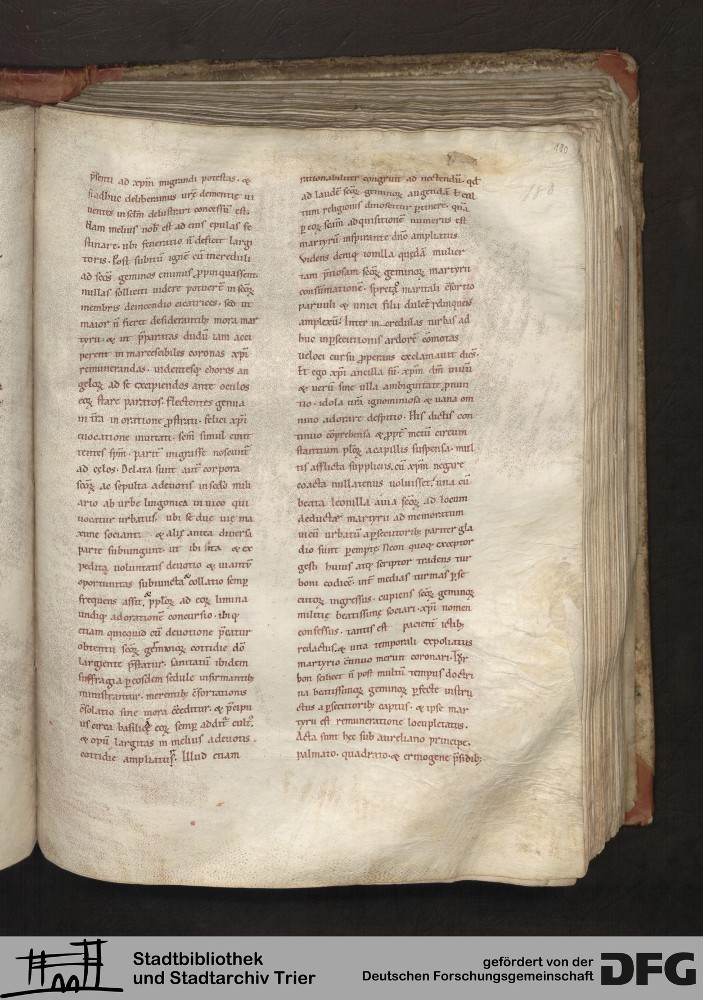 p̄senti ad xp̄m migrandi potestas · &
si adhuc deliberamus ur̄ę dementię ui
uentes in sēm delustrari concessū est·
Nam melius nob̄ est ad eius epulas fe
stinare · ubi feneratio n̄ deficit largi
toris · Post subitū ignē cū incredibili
ad scōs geminos eminus ppinquassent
nullas solliciti uidere potuert̄ in scōꝝ
membris de incendio cicatrices · sed ut
maior n̄ fieret desiderantib; mora mar
tyrii · & ut p̄paratas dudū iam acci
perent inmarcescibiles coronas xp̄i
remunerandas · uidentesq; choros an
geloꝝ ad se excipiendos ante oculos
eoꝝ stare paratos · flectentes genua
in t̄ra in oratione ꝓstrati · felici xp̄i
euocatione inuitati · sēm simul emit
tentes sp̄m · parit̄ migrasse noscunt̄
ad cęlos · Delata sunt aut̄ corpora
scōꝝ ac sepulta a deuotis in scdo mili
ario ab urbe lingonica in uico qui
uocatur urbatus · ubi se duę uię ma
xime sociant · & alię antea diuersa
parte subiungunt · ut ibi sita & ex
pedita uoluntatis deuotio & uiantiū
oportunitas subiuncta collatio semp̄
frequens assit · & p̄ploꝝ ad eoꝝ limina
undiq; adorationē concursio · ibiq;
etiam quicquid cū deuotione p̄catur
obtentu scōꝝ geminoꝝ cottidie dō
largiente p̄statur · sanitatū ibidem
suffragia p eosdem sedule infirmantib;
ministrantur · merentib; c̄fortationis
c̄solatio sine mora c̄ceditur · & p̄cipu
us circa basilicā eoꝝ semp̄ addit̄ cult;
& opū largitas in melius a deuotis ·
cottidie ampliatur · Illud etiam
rationabiliter congruit ad nectendū · qd̄
ad laudē scōꝝ geminoꝝ augendā & cul
tum religionis dinoscitur p̄tinere · quia
p eoꝝ scām adquisitionē numerus est
martyrū inspirante dn̄o ampliatus
Videns deniq; ionilla quędā mulier
tam p̄tiosam scōꝝ geminoꝝ martyrū
consūmationē · spretoq; maritali c̄sortio
paruuli & unici filii dulcē relinquens
amplexū · Inter incredulas turbas ad
huc in p̄secutionis ardorē c̄motas
ueloci cursu ꝓperans exclamauit dicēs·
Et ego xp̄i ancilla sū · xp̄m dm̄ uiuū
& uerū sine ulla ambiguitate ꝓnun
tio · idola ur̄a ignominiosa & uana om
nino adorare despitio · His dictis con
tinuo cōprehensa & ꝓpt̄ metū circum
stantium ploꝝ a capillis suspensa · mul
tis afflicta suppliciis · cū xp̄m negare
coacta nullatenus uoluisset · una cū
beata leonilla auia scōꝝ ad locum
deductae martyrii ad memoratum
uicū urbatū a p̄secutorib; pariter gla
dio sunt p̄emptę · Neon quoq; exceptor
gesti huius atq; scriptor tradens tur
boni codicē · int̄ medias turmas p̄se
cutoꝝ ingressus · cupiens scōꝝ geminoꝝ
militię beatissimę sociari · xp̄i nomen
confessus · tantis est pacient ictib;
redactus · & uita temporali expoliatus
martyrio c̄tinuo meruit coronari · Tur
bon scilicet n̄ post multū tempus doctri
na beatissimoꝝ geminoꝝ p̄fecte instru
ctus a p̄secutorib; captus · & ipse mar
tyrii est remuneratione locupletatus ·
Acta sunt hęc sub aureliano principe ·
palmato · quadrato · & ermogene p̄sidib;
180
180
Stadtbibliothek
und Stadtarchiv Trier
gefördert von der
Deutschen Forschungsgemeinschaft
DFG